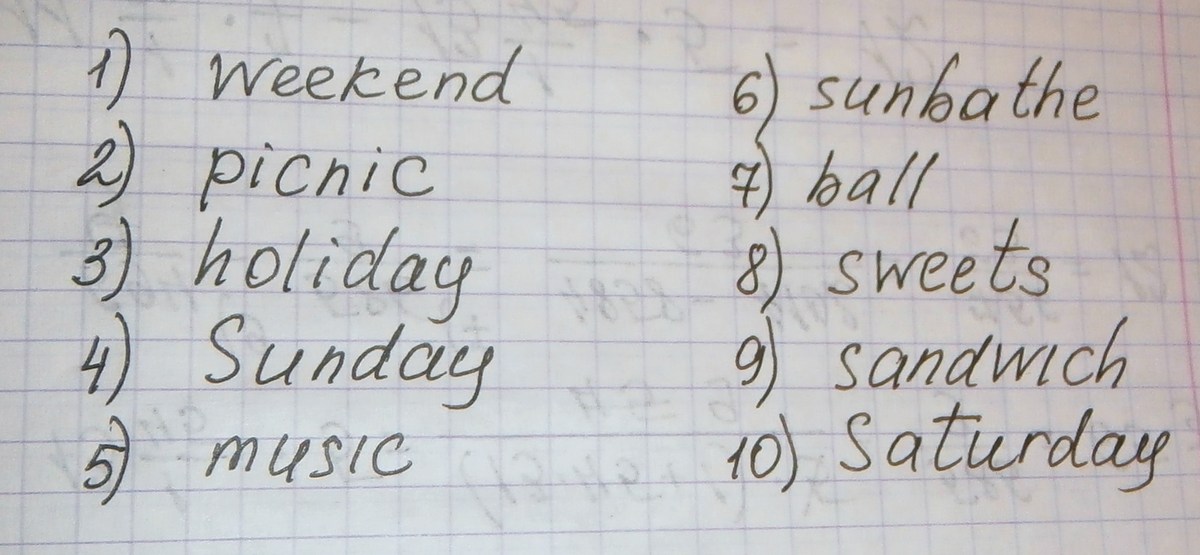 1) weekend
2) picnic
3) holiday
4) Sunday
5) music
6) sunbathe
7) ball
8) sweets
9) sandwich
10) Saturday